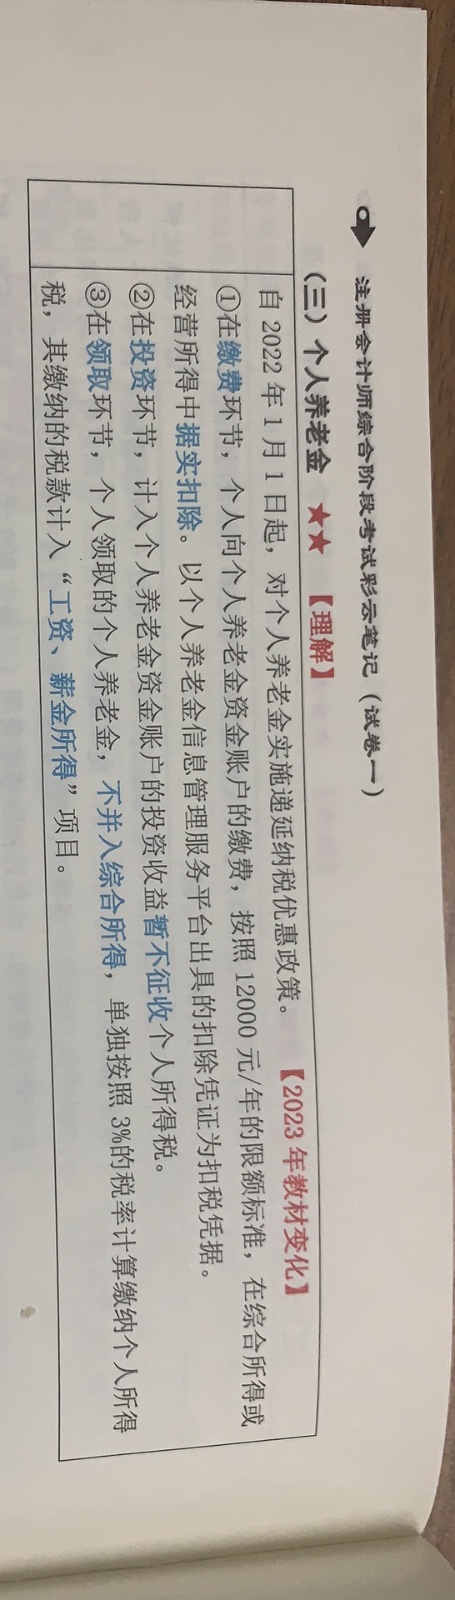 注册会计师综合阶段考试彩云笔记（试卷一）
（三）个人养老金 ★★ 【理解】
自 2022 年 1 月 1 日起，对个人养老金实施递延纳税优惠政策。 【2023 年教材变化】
①在缴费环节，个人向个人养老金资金账户的缴费，按照 12000 元/年的限额标准，在综合所得或
经营所得中据实扣除。以个人养老金信息管理服务平台出具的扣除凭证为扣税凭据。
②在投资环节，计入个人养老金资金账户的投资收益暂不征收个人所得税。
③在领取环节，个人领取的个人养老金，不并入综合所得，单独按照 3%的税率计算缴纳个人所得
税，其缴纳的税款计入“工资、薪金所得”项目。